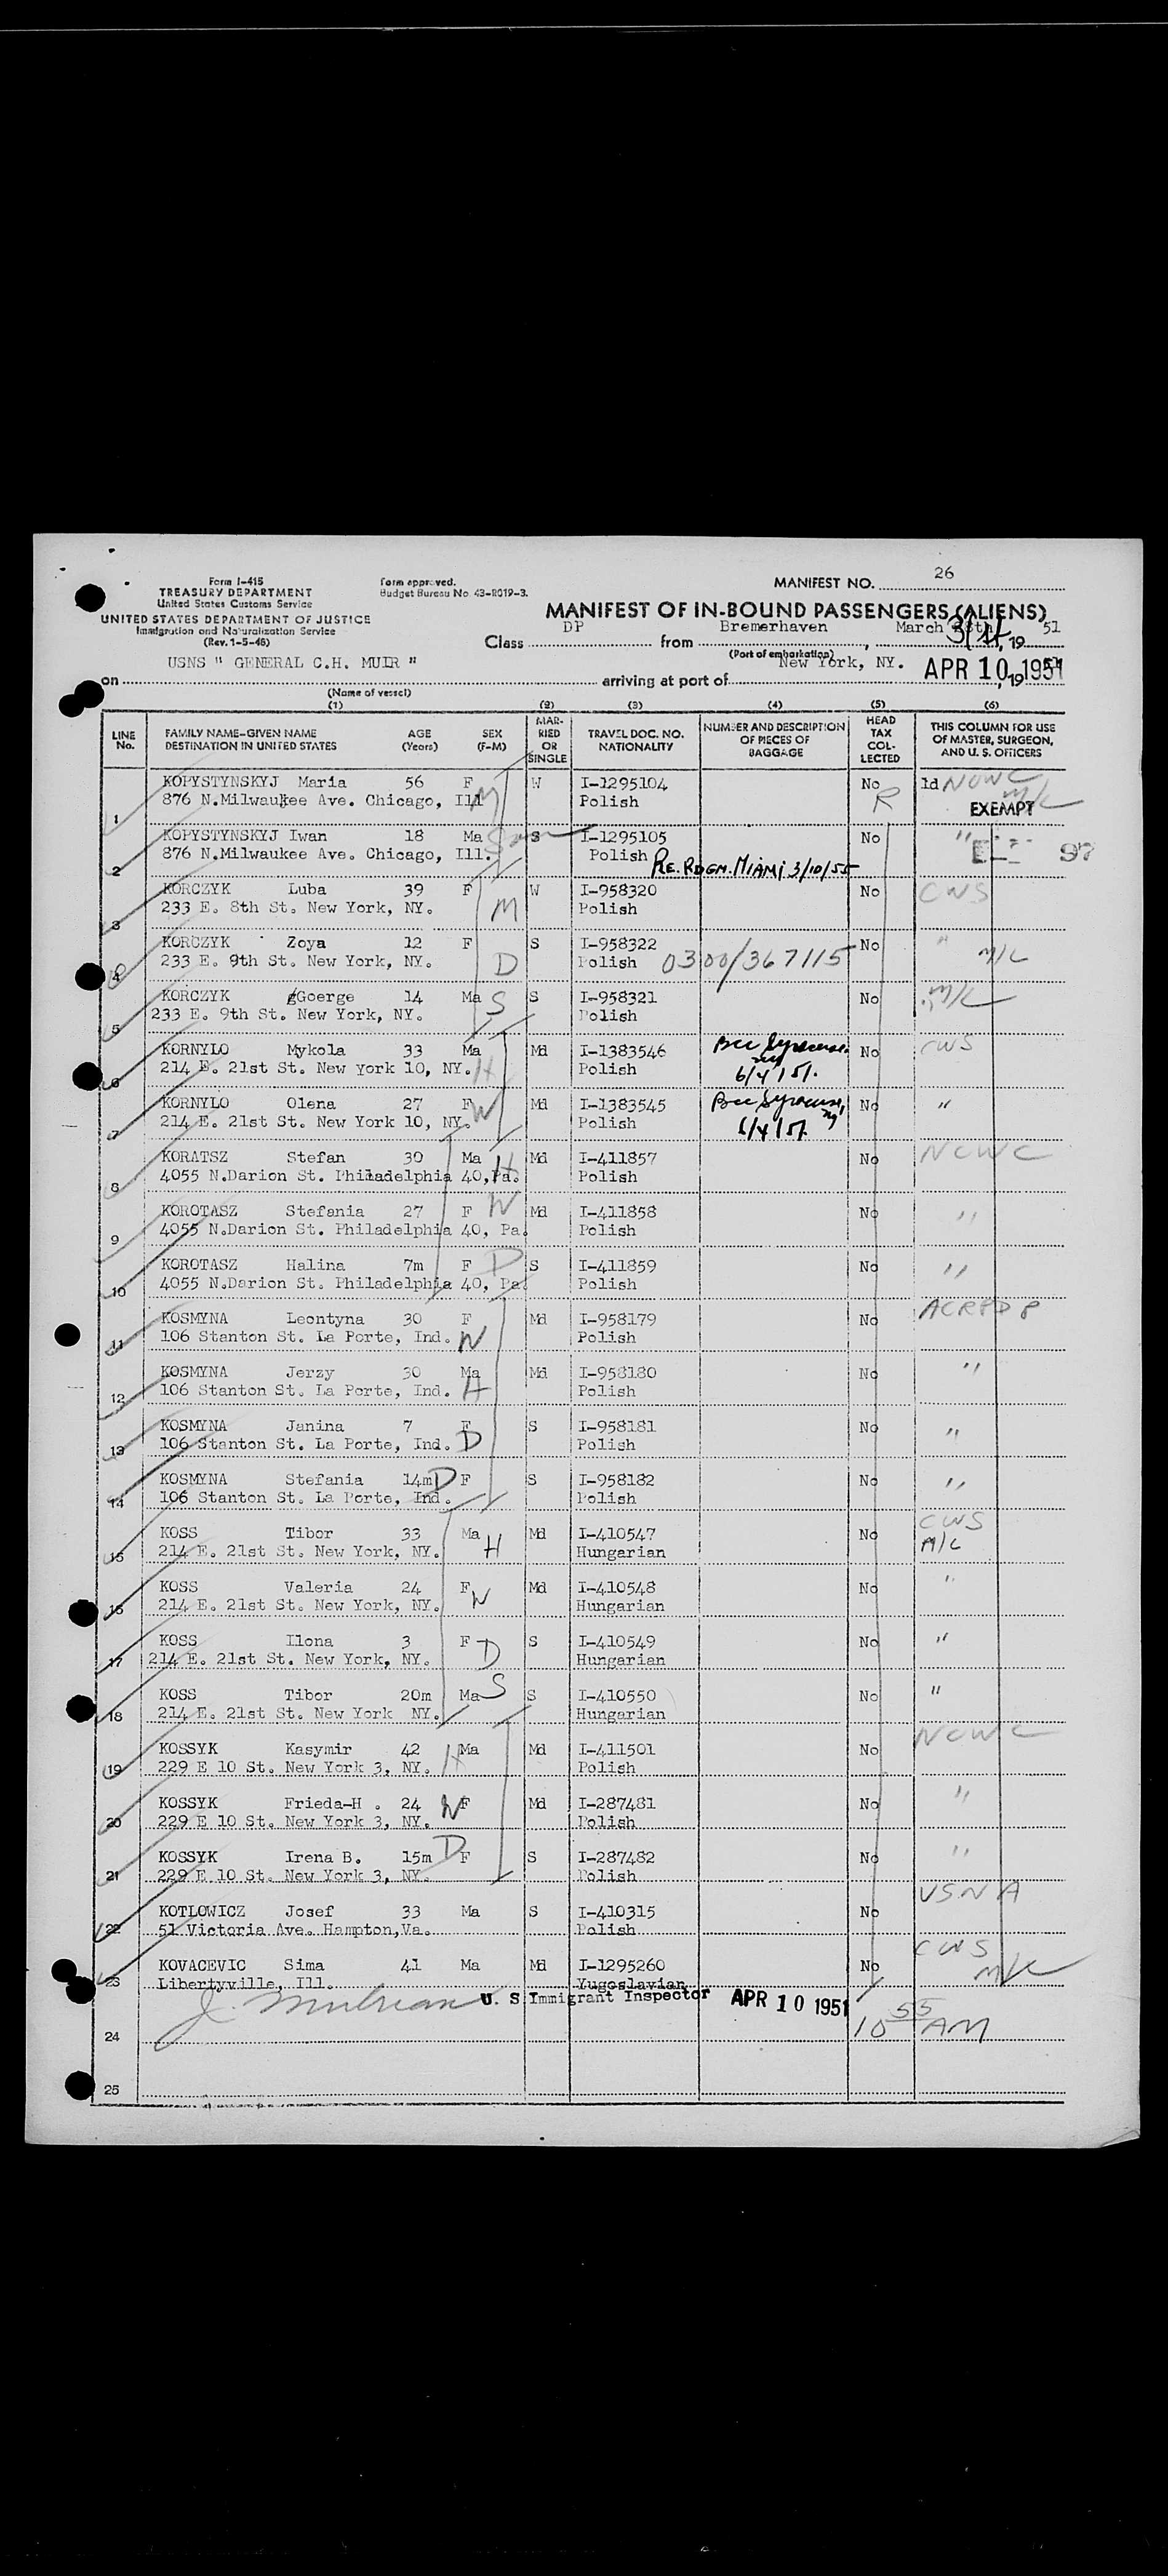 Form I-415
TREASURY DEPARTMENT
United States Customs Service
UNITED STATES DEPARTMENT OF JUSTICE
Immigration and Naturalization Service
(Rev. 1-5-48)
Form approved.
Budget Bureau No. 43-R019-3.
MANIFEST NO. 26
MANIFEST OF IN-BOUND PASSENGERS (ALIENS)
Class DP from Bremerhaven, March 3/1st, 19 51
(Port of embarkation)
on USNS " GENERAL C.H. MUIR " arriving at port of New York, NY. APR 10 1951, 19
(Name of vessel)
(1) (2) (3) (4) (5) (6)
LINE No. FAMILY NAME–GIVEN NAME DESTINATION IN UNITED STATES AGE (Years) SEX (F-M) MARRIED OR SINGLE TRAVEL DOC. NO. NATIONALITY NUMBER AND DESCRIPTION OF PIECES OF BAGGAGE HEAD TAX COLLECTED THIS COLUMN FOR USE OF MASTER, SURGEON, AND U. S. OFFICERS
KOPYSTYNSKYJ Maria 56 F W I-1295104 No ld NCWC
1 876 N.Milwaukee Ave. Chicago, Ill M Polish R EXEMPT M/C
KOPYSTYNSKYJ Iwan 18 Ma Son S I-1295105 No "
2 876 N.Milwaukee Ave. Chicago, Ill. Polish RE. RDGM. MIAMI 3/10/55 97
KORCZYK Luba 39 F W I-958320 No CWS
3 233 E. 8th St. New York, NY. M Polish
KORCZYK Zoya 12 F S I-958322 No "
4 233 E. 9th St. New York, NY. D Polish 0300/367115 M/C
KORCZYK gGoerge 14 Ma S S I-958321 No " M/C
5 233 E. 9th St. New York, NY. Polish
KORNYLO Mykola 33 Ma Md I-1383546 Bcc Syracuse, ny No CWS
6 214 E. 21st St. New York 10, NY. H Polish 6/4/51.
KORNYLO Olena 27 F W Md I-1383545 Bcc Syracuse, ny No "
7 214 E. 21st St. New York 10, NY. Polish 6/4/51
KORATSZ Stefan 30 Ma H Md I-411857 No NCWC
8 4055 N.Darion St. Philadelphia 40,Pa. Polish
KOROTASZ Stefania 27 F W Md I-411858 No "
9 4055 N.Darion St. Philadelphia 40, Pa. Polish
KOROTASZ Halina 7m F D S I-411859 No "
10 4055 N.Darion St. Philadelphia 40, Pa. Polish
KOSMYNA Leontyna 30 F Md I-958179 No
11 106 Stanton St. La Porte, Ind. W Polish
KOSMYNA Jerzy 30 Ma Md I-958180 No "
12 106 Stanton St. La Porte, Ind. H Polish
KOSMYNA Janina 7 F S I-958181 No "
13 106 Stanton St. La Porte, Ind. D Polish
KOSMYNA Stefania 14m D F S I-958182 No "
14 106 Stanton St. La Porte, Ind. Polish
KOSS Tibor 33 Ma Md I-410547 No CWS
15 214 E. 21st St. New York, NY. H Hungarian M/C
KOSS Valeria 24 F W Md I-410548 No "
16 214 E. 21st St. New York, NY. Hungarian
KOSS Ilona 3 F D S I-410549 No "
17 214 E. 21st St. New York, NY. Hungarian
KOSS Tibor 20m Ma S S I-410550 No "
18 214 E. 21st St. New York NY. Hungarian
KOSSYK Kasymir 42 H Ma Md I-411501 No NCWC
19 229 E 10 St. New York 3, NY. Polish
KOSSYK Frieda-H . 24 W F Md I-287481 No "
20 229 E 10 St. New York 3, NY. Polish
KOSSYK Irena B. 15m D F S I-287482 No "
21 229 E 10 St. New York 3, NY. Polish
KOTLOWICZ Josef 33 Ma S I-410315 No USNA
22 51 Victoria Ave. Hampton,Va. Polish
KOVACEVIC Sima 41 Ma Md I-1295260 No CWS
23 Libertyville, Ill. Yugoslavian M/C
U. S Immigrant Inspector APR 10 1951
24 10 55 AM
25